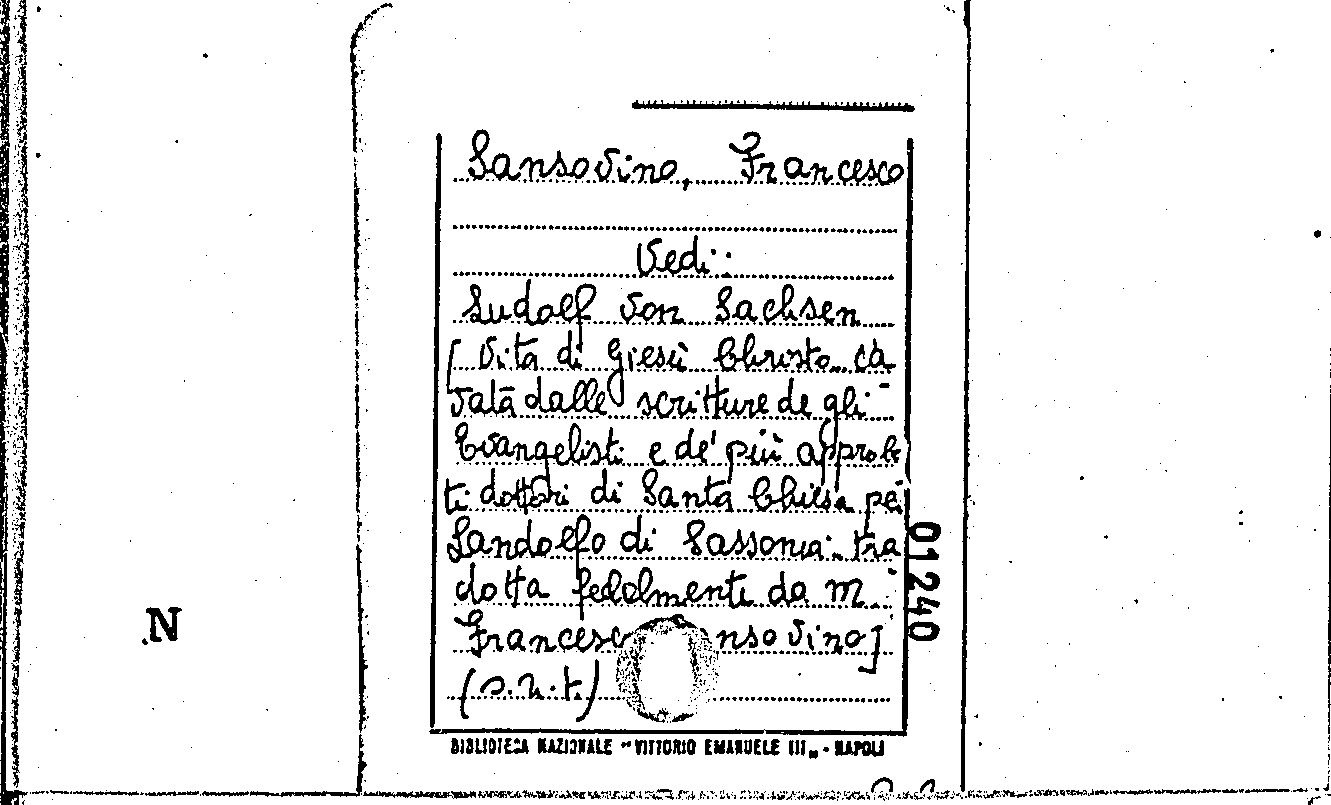 Sansovino, Francesco
Vedi:
Ludolf von Sachsen
[Vita di Giesù Christo ca
vata dalle scritture de gli
Evangelisti e de' più approba
ti dottori di Santa Chiesa pe
Landolfo di Sassonia: tra
dotta fedelmente da m.
Francesc nsovino]
(s.n.t.)
01240
N
BIBLIOTECA NAZIONALE "VITTORIO EMANUELE III„ - NAPOLI